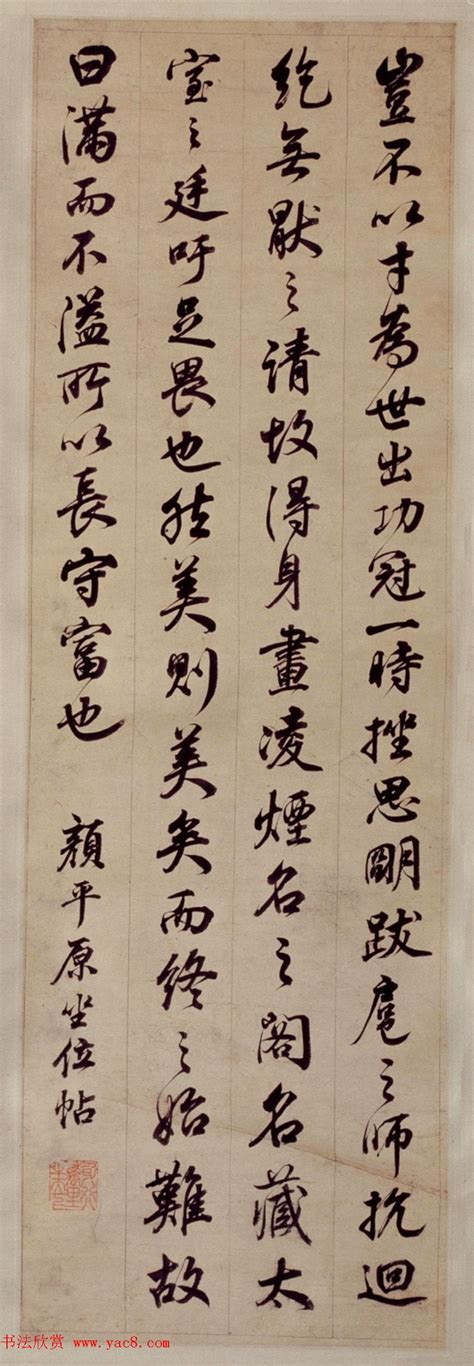 豈不以才為世出功冠一時挫思明跋扈之師抗迴
紇無猒之請故得身畫凌煙名之閣名藏太
室之廷吁足畏也然美則美矣而終之始難故
曰滿而不溢所以長守富也 顏平原坐位帖
书法欣赏 www.yac8.com